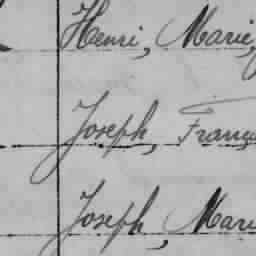 Henri, Marie,
Joseph, Franç
Joseph, Marie